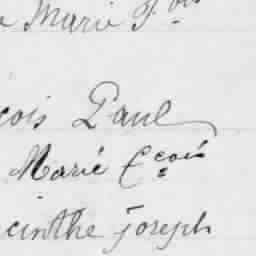 Marie F. ois
cois Paul
Marié Fçois
cinthe joseph